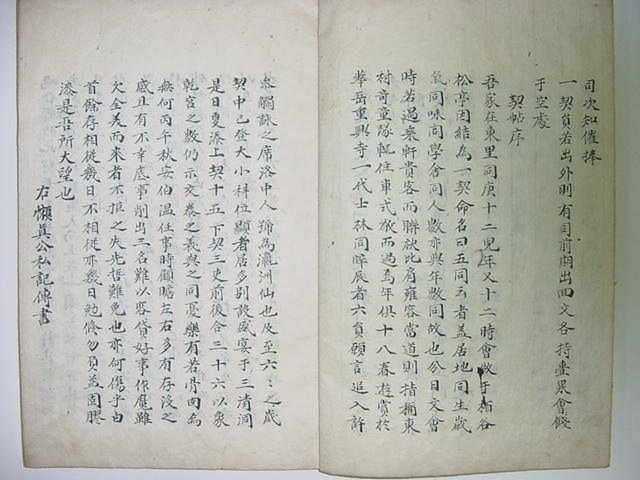 司次知催捧
一 契員若出外則有司前期出回文各持壺果會餞
于空處
契帖序
吾家在東里同庚十二児年又十二時會做于栢谷
松亭因結為一契命名曰五同云者盖居地同生歲
同味同學舍同人數亦與年數同故也公日文會
時若過衆軒貴客而聯袂比肩雍容當道則指桶東
村奇童隊軏住車式敬而過焉年俱十八春遊賞於
華岳重興寺一代士林同晬辰者六負願言追入許
叅觴詠之席洛中人號為瀛洲仙也及至六六之歲
契中已登大小科位顯者居多別設盛宴于三清洞
是日夏添上契十五下契三吏前後合三十六以象
乾宮之數仍示交泰之義與之同憂樂有若骨肉焉
無何丙午秋安伯温任事時顧瞻左右多有存没之
感且有不幸底事削出三名難以容貸好事作魔雖
欠全美而來者不拒之失先哲難免也亦何傷乎白
首餘存相從幾日不相從亦幾日勉修勿負益固膠
漆是吾所大望也
右懶真公私記傳書